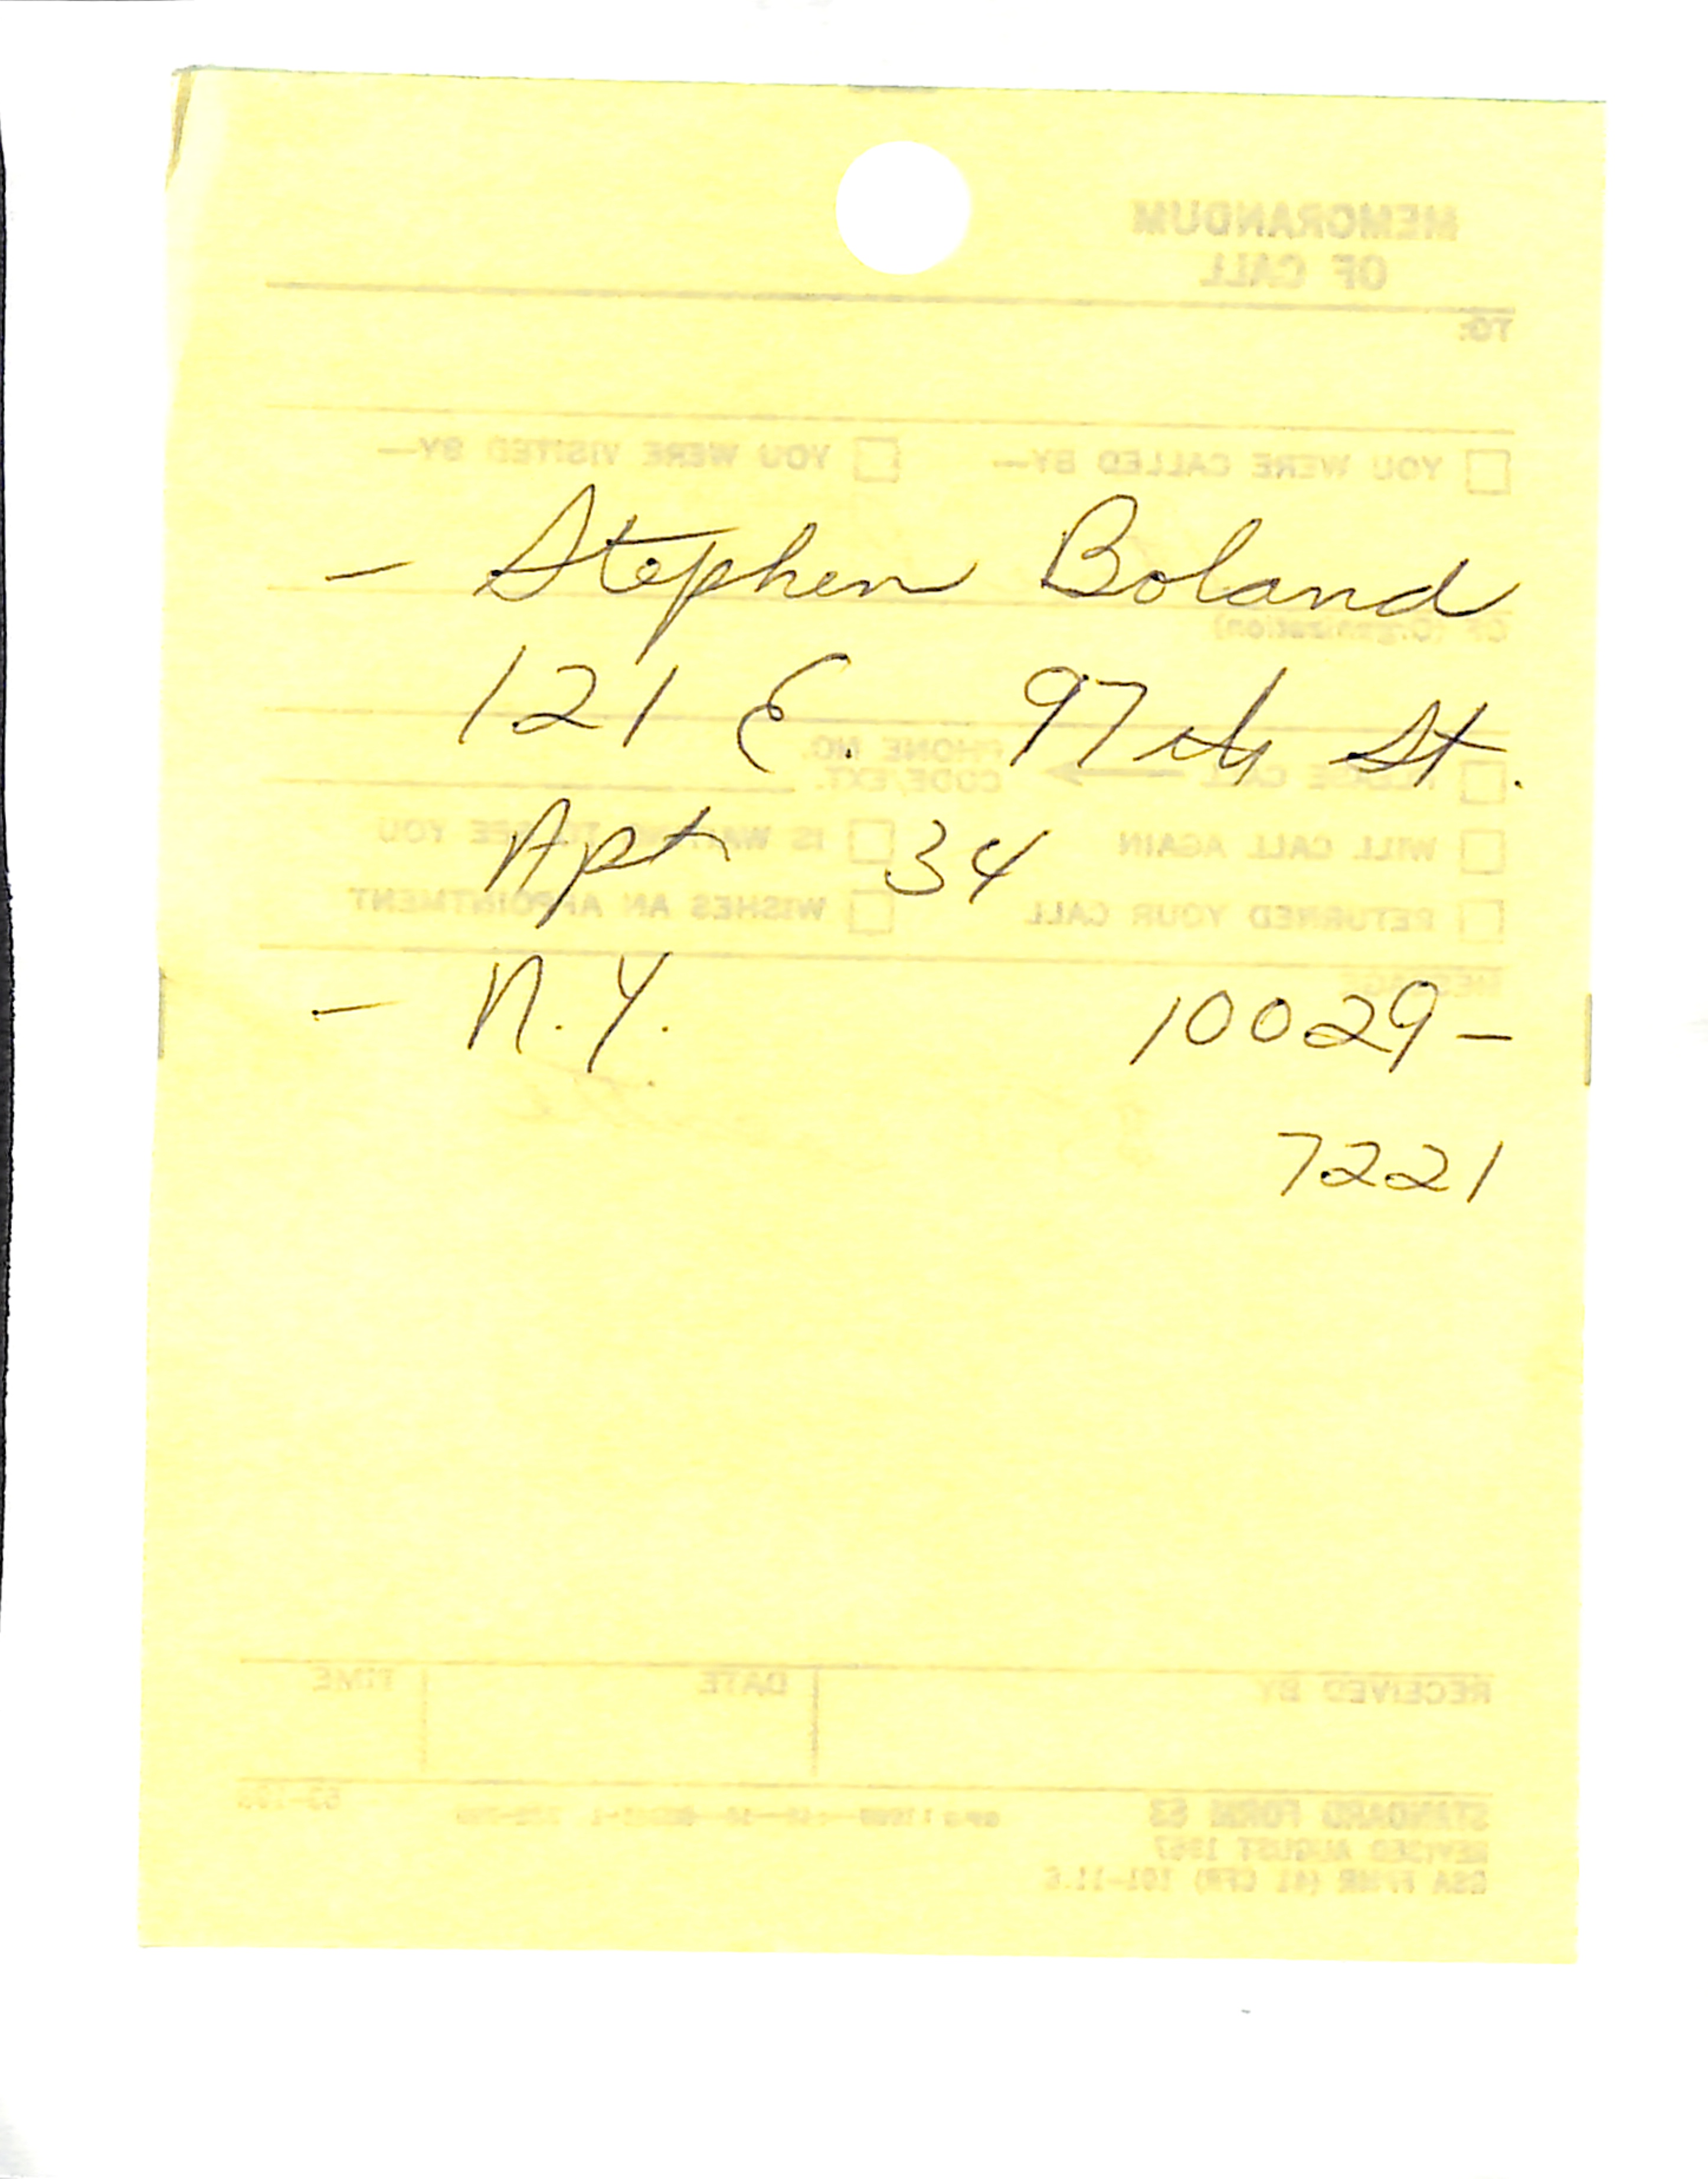 MEMORANDUM
OF CALL
TO:
YOU WERE CALLED BY— YOU WERE VISITED BY—
– Stephen Boland
OF (Organization)
121 E. 97th St.
PLEASE CALL PHONE NO. CODE/EXT.
Apt 34
WILL CALL AGAIN IS WAITING TO SEE YOU
RETURNED YOUR CALL WISHES AN APPOINTMENT
MESSAGE
– N.Y. 10029–
7221
RECEIVED BY DATE TIME
STANDARD FORM 63
REVISED AUGUST 1967
GSA FPMR (41 CFR) 101-11.6